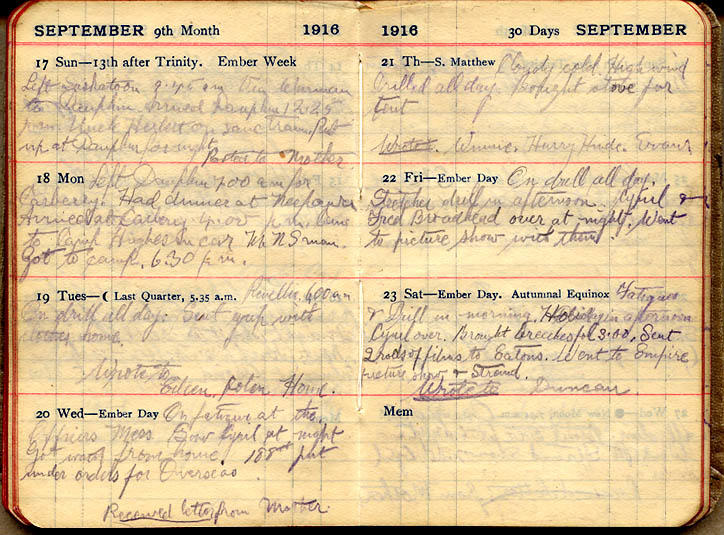 SEPTEMBER 9th Month 1916
17 Sun—13th after Trinity. Ember Week
Left Saskatoon 9.45 am
to Dauphin Arrived Dauphin 12.25
Uncle Herbert on same train Put
up at Dauphin for night
Mother
18 Mon Left Dauphin 7.00 a.m for
Carberry. Had dinner at Neepawa
Arrived at Carberry 4.00 p.m. Came
to Camp Hughes in car
Got to camp. 6.30 p.m.
19 Tues—☾ Last Quarter, 5.35 a.m. Reveille 6.00 am
On drill all day. Sent grip with
clothes home.
Wrote to
Eileen, Home.
20 Wed—Ember Day On fatigue at the
Officers Mess. Saw Cyril at night
Got from home. 188th put
under orders for Overseas.
Received letter from Mother.
1916 30 Days SEPTEMBER
21 Th—S. Matthew Cloudy cold. High wind
Drilled all day. Bought stove for
tent
Wrote. Winnie. Harry Hinde. Evans
22 Fri—Ember Day On drill all day.
drill in afternoon. Cyril &
Fred Broadhead over at night. Went
to picture show with them.
23 Sat—Ember Day. Autumnal Equinox Fatigues
& Drill in morning. Holiday in afternoon
Cyril over. Bought breeches for 3.00. Sent
2 rolls of films to Eatons. Went to Empire
picture show & Strand.
Wrote to Duncan
Mem